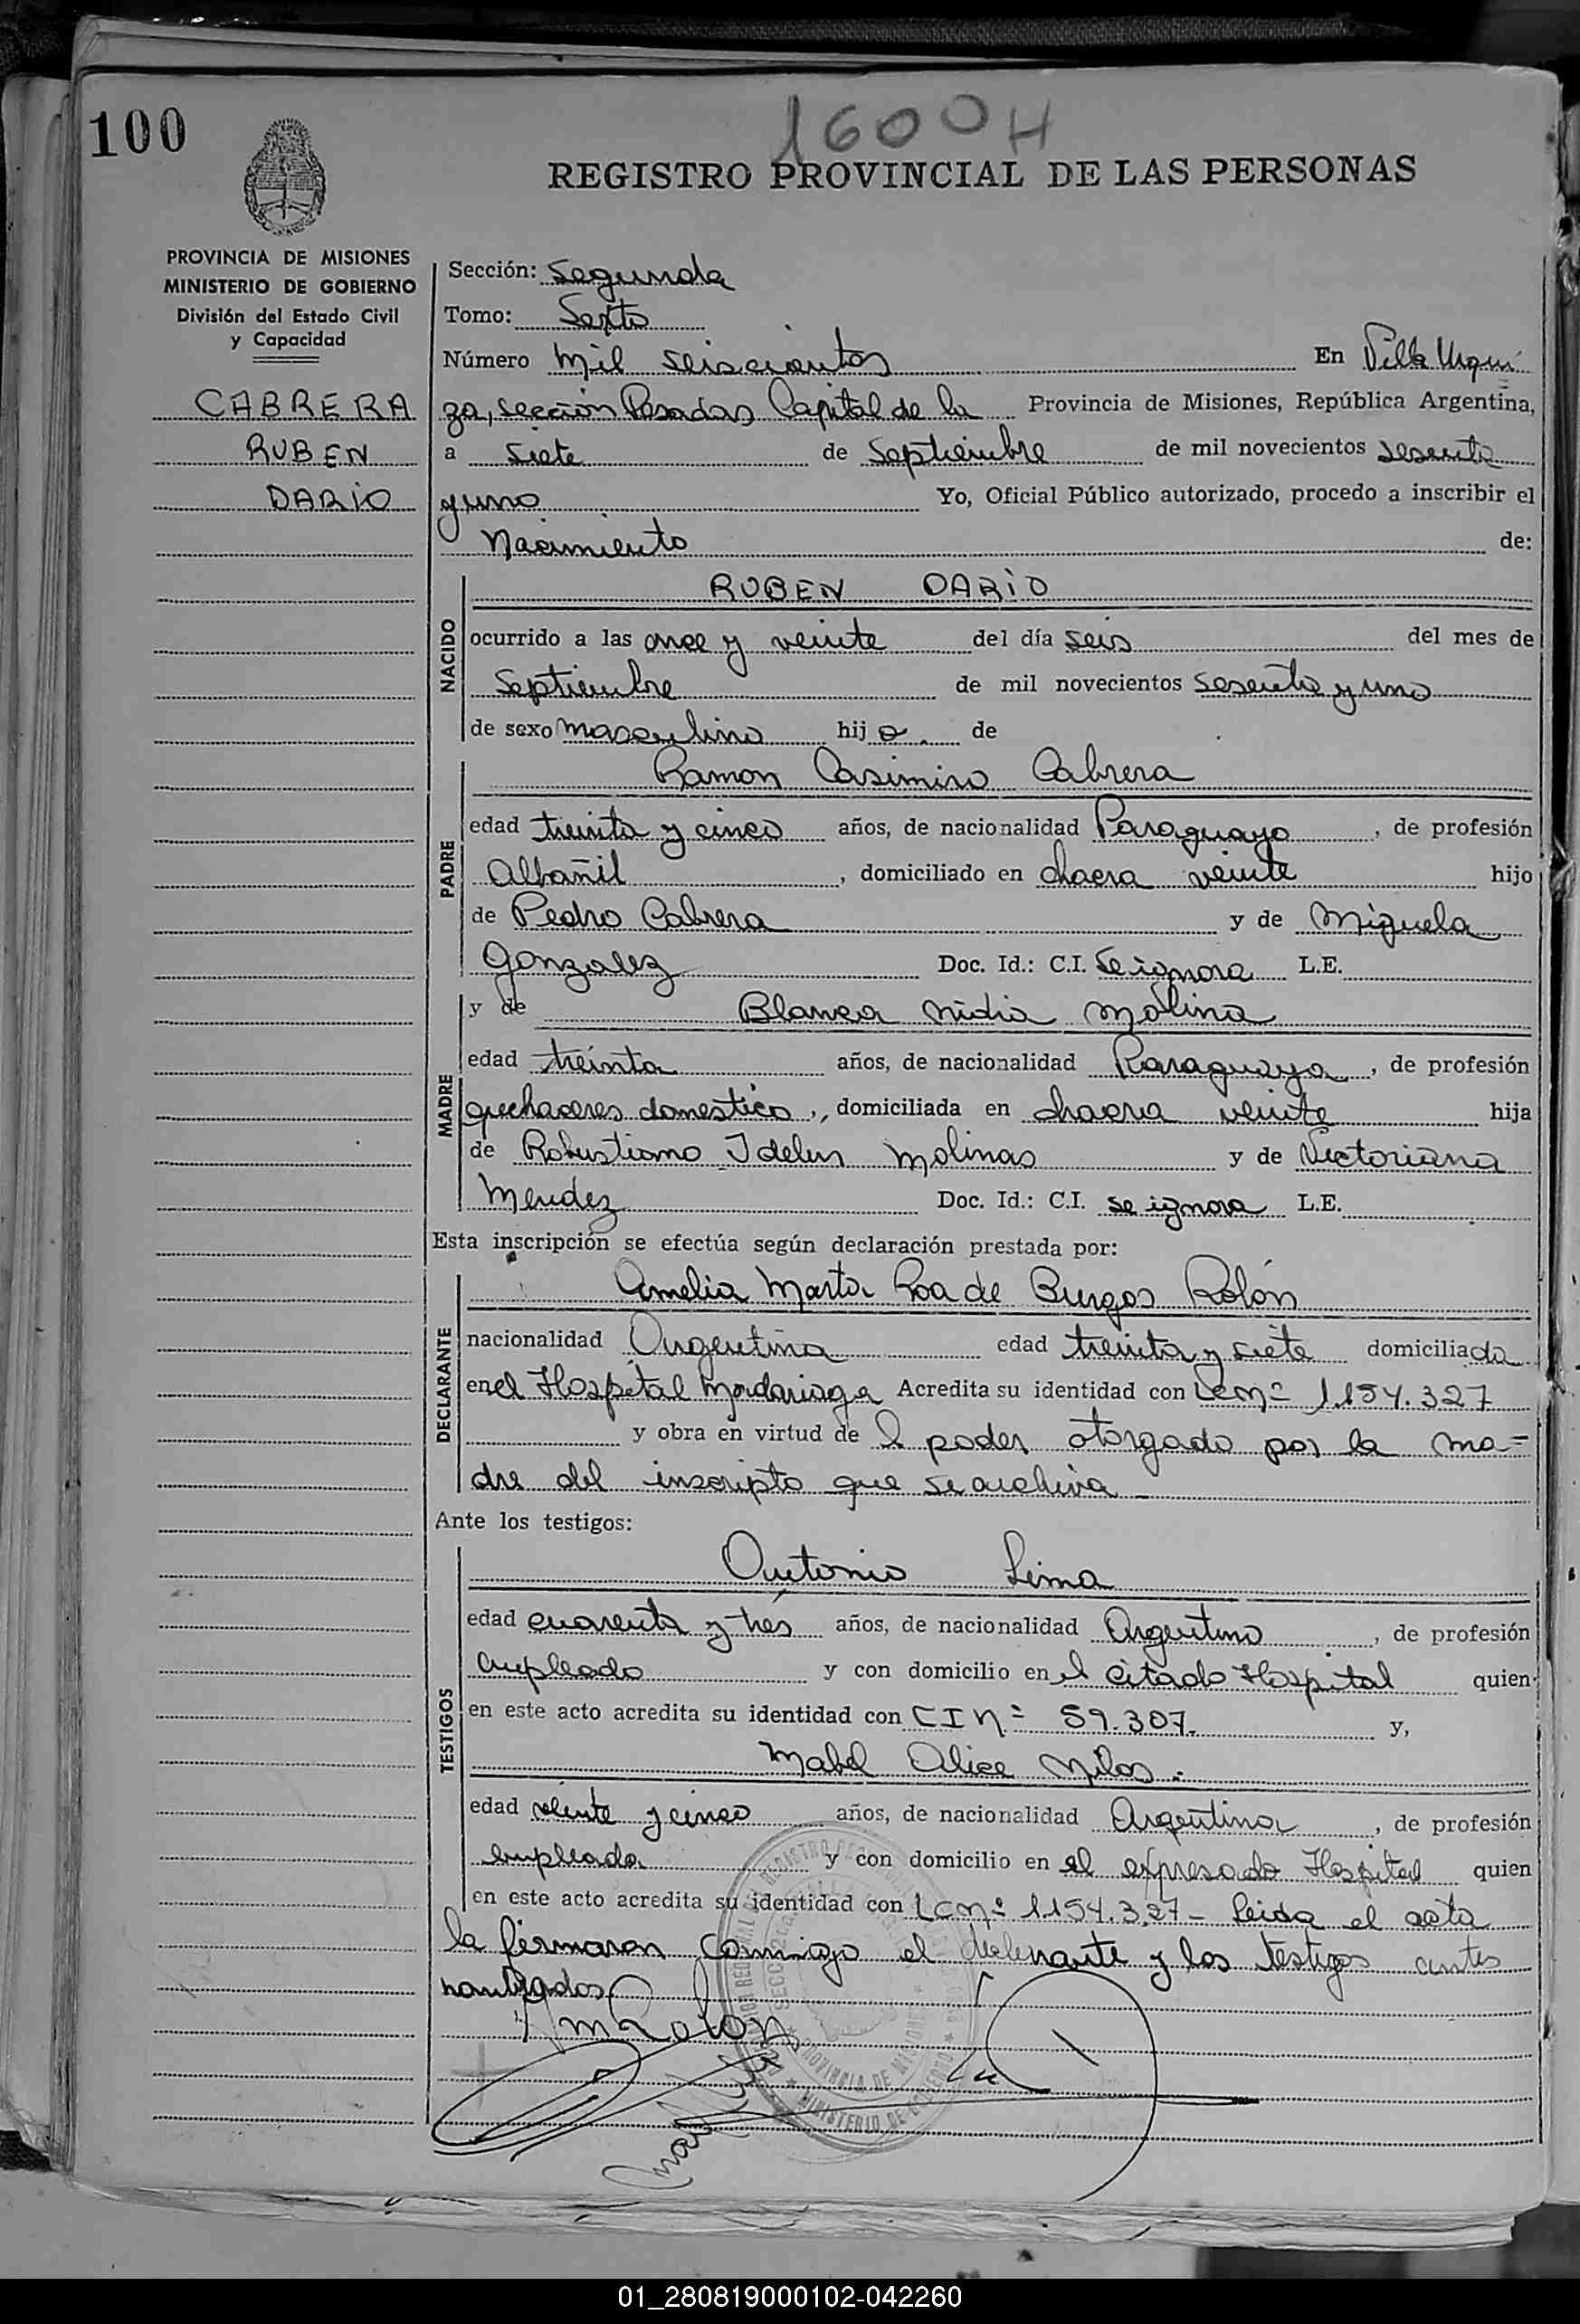 100
1600 H
REGISTRO PROVINCIAL DE LAS PERSONAS
PROVINCIA DE MISIONES
MINISTERIO DE GOBIERNO
División del Estado Civil
y Capacidad
CABRERA
RUBEN
DARIO
Sección: Segunda
Tomo: Sexto
Número Mil seiscientos En Villa Urqui
za, sección Posadas Capital de la Provincia de Misiones, República Argentina,
a siete de Septiembre de mil novecientos sesenta
y uno Yo, Oficial Público autorizado, procedo a inscribir el
Nacimiento de:
NACIDO
RUBEN DARIO
ocurrido a las once y veinte del día seis del mes de
Septiembre de mil novecientos sesenta y uno
de sexo masculino hijo de
PADRE
Ramon Casimiro Cabrera
edad treinta y cinco años, de nacionalidad Paraguayo, de profesión
Albañil, domiciliado en chacra veinte hijo
de Pedro Cabrera y de Miguela
Gonzalez Doc. Id.: C.I. Se ignora L.E.
MADRE
y de Blanca Nidia Molina
edad treinta años, de nacionalidad Paraguaya, de profesión
quehaceres domestico, domiciliada en chacra veinte hija
de Robustiano Molinas y de Victoriana
Mendez Doc. Id.: C.I. se ignora L.E.
Esta inscripción se efectúa según declaración prestada por:
DECLARANTE
Amelia Marta Roa de Burgos Rolón
nacionalidad Argentina edad treinta y siete domiciliada
en el Hospital Madariaga Acredita su identidad con Lc nº 1.154.327
y obra en virtud de l poder otorgado por la ma=
dre del inscripto que se archiva
Ante los testigos:
TESTIGOS
Antonio Lima
edad cuarenta y tres años, de nacionalidad Argentino, de profesión
empleado y con domicilio en el citado Hospital quien
en este acto acredita su identidad con CI Nº 59.307. y,
Mabel Alice
edad veinte y cinco años, de nacionalidad Argentina, de profesión
empleada y con domicilio en el expresado Hospital quien
en este acto acredita su identidad con Lc nº 1.154.327 - Leida el acta
la firmaron conmigo el declarante y los testigos antes
nombrados
AmRolon
01_280819000102-042260